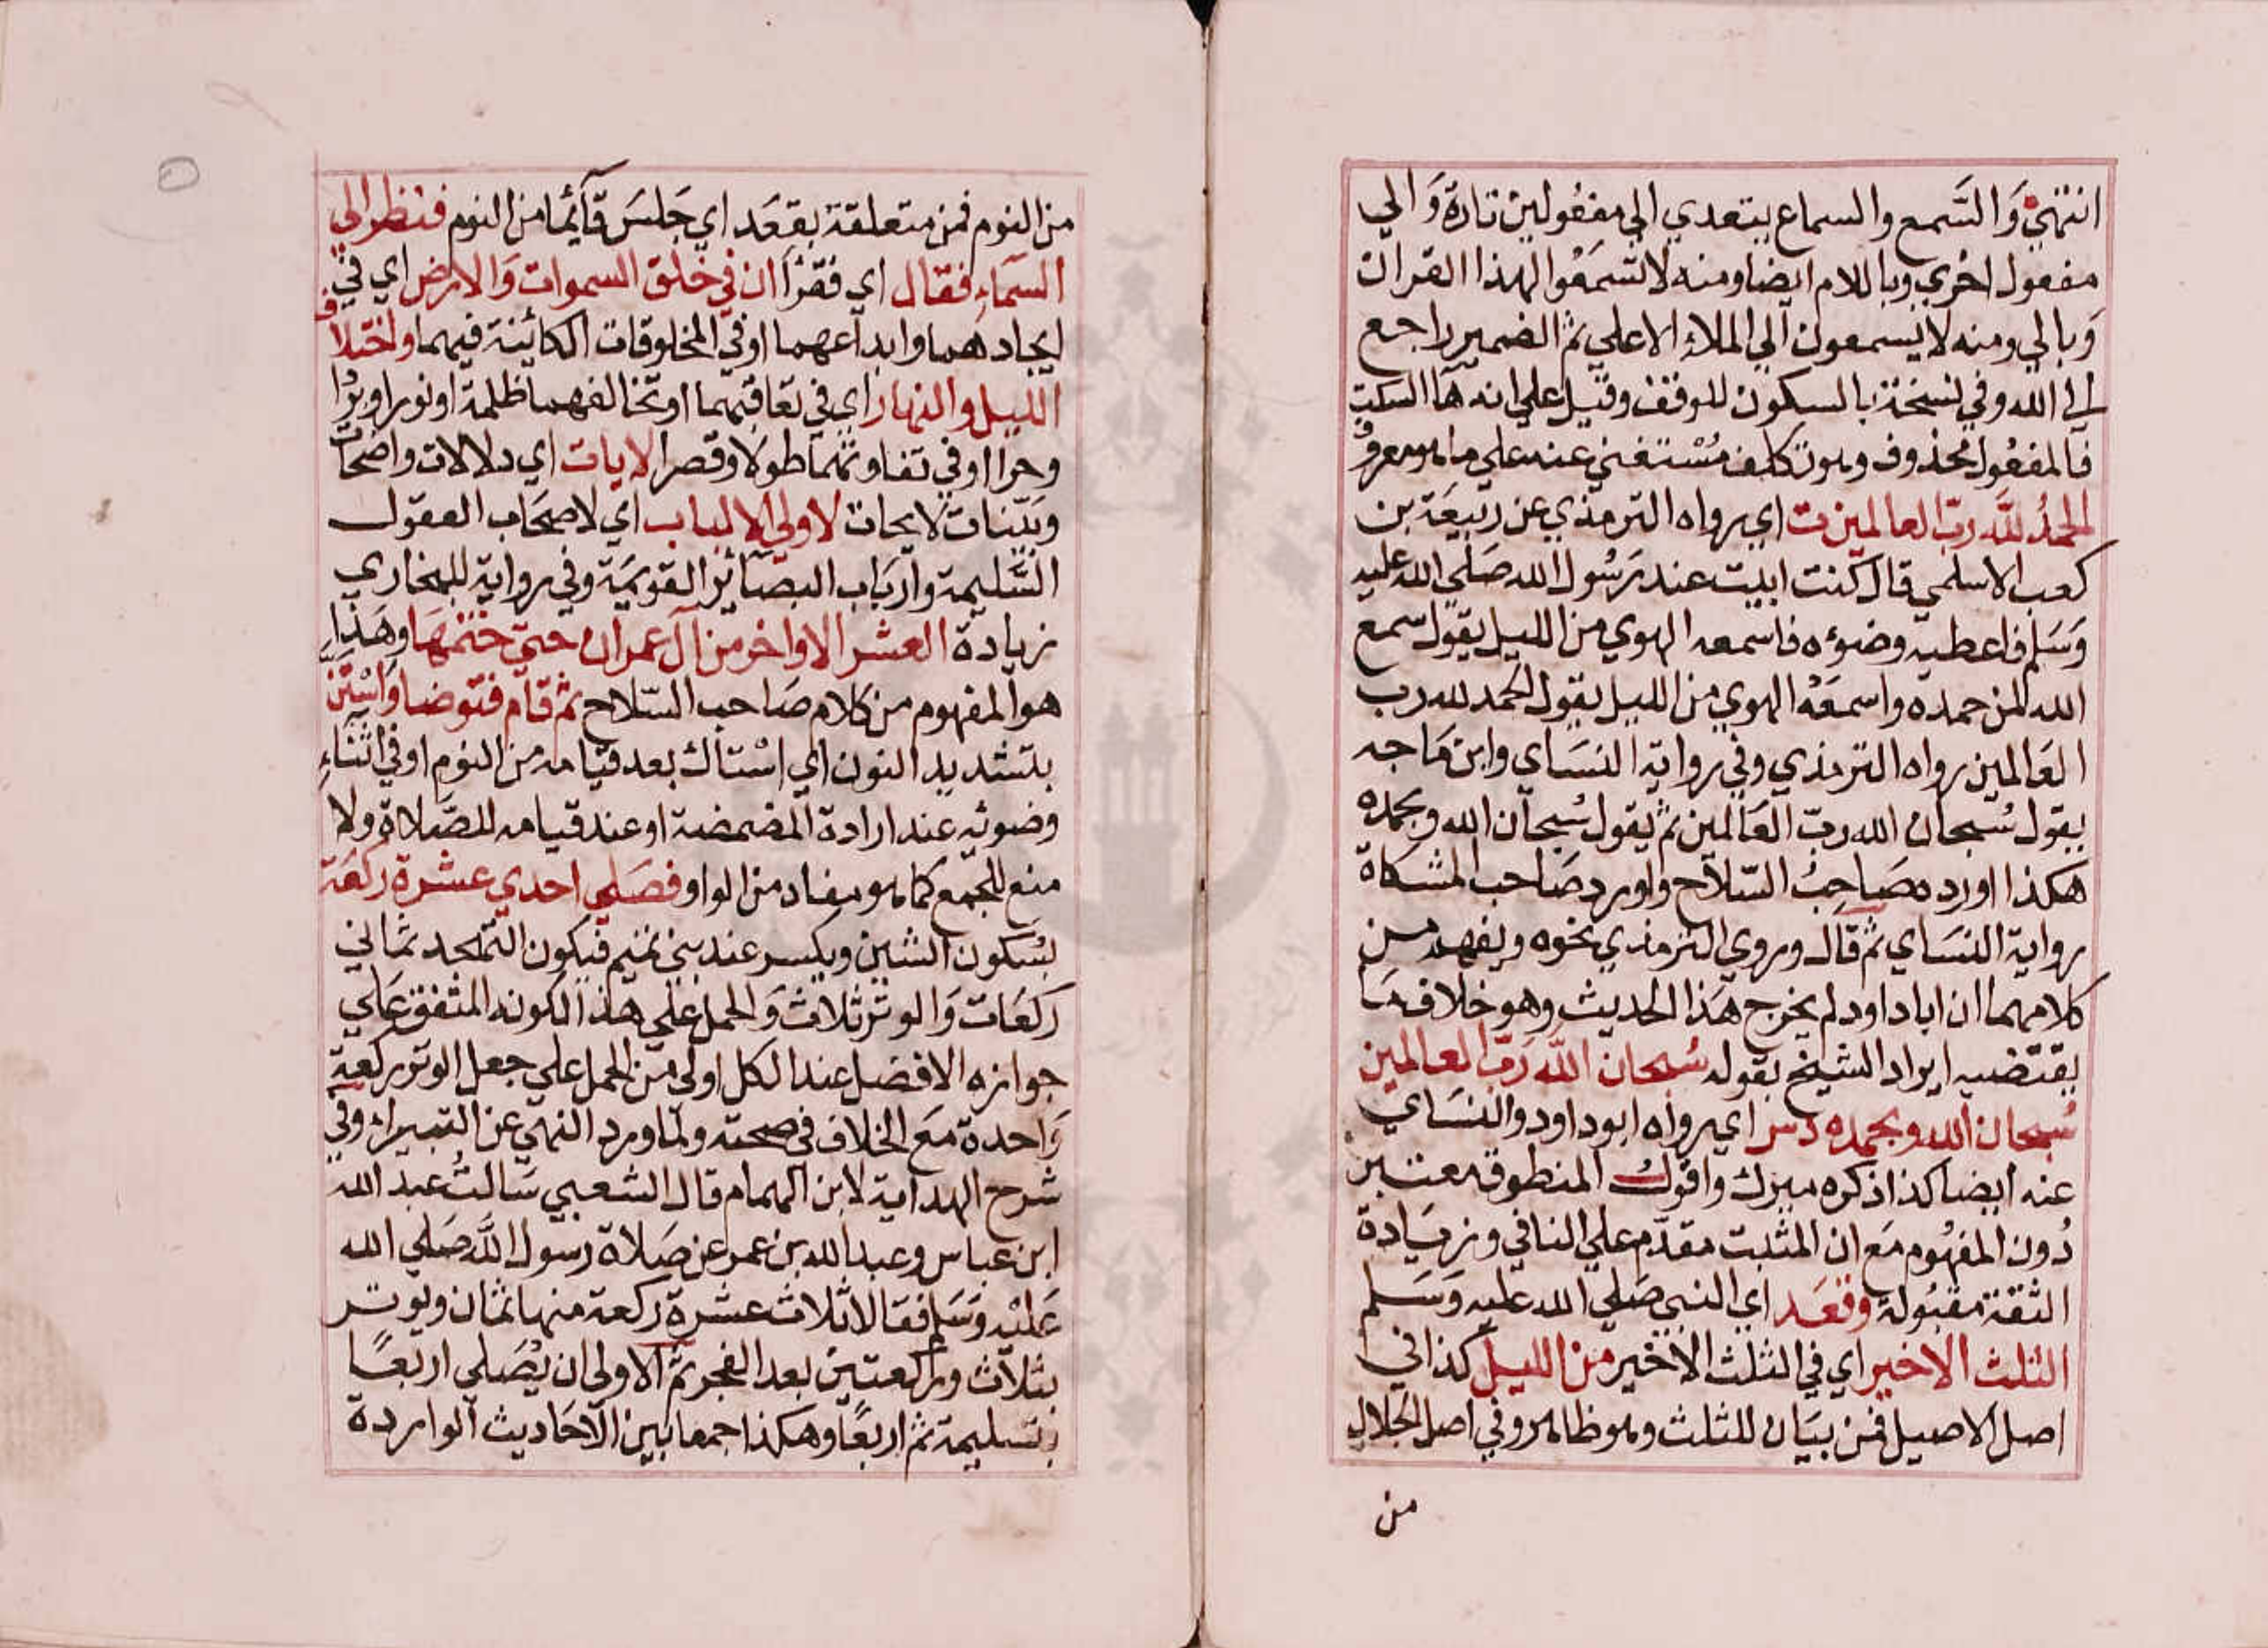 انتهي وَالسَّمع والسماع يتعدي الي مفعُولين تارة وَالي
مفعول اخري وباللام ايضا ومنه لا تسمَعُوا لهذا القران
وَبالي ومنه لا يسمعون الي الملاء الاعلي ثم الضمير راجع
الي الله وفي نسخة بالسكون للوقف وقيل علي انه هآ السكت
فالمفعُول محذوف وهو تكلف مُسْتغني عنه علي ما هو معروف
الحمدُ للَّه ربّ العالمين ت اي رواه الترمذي عن ربيعَة بن
كعب الاسلمي قال كنت ابيت عند رَسُول الله صَلي الله عليه
وَسَلم فاعطيه وضوءه فاسمعه الهوي من الليل يقول سمع
الله لمن حمده واسمعَهُ الهوي من الليل يقول الحمد لله رب
العَالمين رواه الترمذي وفي رواية النسَاي وابن مَاجه
يقول سُبحان الله ربّ العَالمين ثم يقول سُبحان الله وبحمده
هكذا اورده صَاحِبُ السّلاح واورد صَاحب المشكاة
رواية النسَاي ثم قال وروي الترمذي نحوه ويفهم من
كلامهما ان ابا داود لم يخرج هَذا الحديث وهو خلاف مَا
يقتضيه ايراد الشيخ بقوله سُبحان اللَّه رَبّ العالمين
سُبحان الله وبحمده د س اي رواه ابو داود والنسَاي
عنه ايضا كذا ذكره ميرك واقول المنطوق معتبر
دُون المفهُوم مَع ان المثبت مقدّم علي النافي وزيَادة
الثقة مقبُولة وقعَد اي النبي صَلي الله عليه وَسَلم
الثلث الاخير اي في الثلث الاخير من الليل كذا في
اصل الاصيل فمن بيَان للثلث وهو ظاهر وفي اصل الجلال
من
من النوم فمن متعلقة بقعَد اي جَلسَ قآئما من النوم فنظر الي
السمَآء فقال اي فقرأ ان في خلق السموات وَالارض اي في
ايجادهما وابداعهما او في المخلوقات الكائينة فيهما واختلاف
الليل والنهار اي في تعَاقبهما او تخالفهما ظلمة او نورا وبرْدا
وحرا او في تفاوتهما طولا وقصرا لايات اي دلالات واضحات
وبيّنات لايحات لاولي الالباب اي لاصحَاب العقول
السَّليمة وارْبَاب البصَآئر القويمَة وفي رواية للبخاري
زيادة العشر الاواخر من آل عمران حتي ختمهَا وهَذا
هو المفهوم من كلام صَاحب السّلاح ثم قام فتوضا وَاسْتَنّ
بتشديد النون اي اسْتاك بعد قيامه من النوم او في اثنَاءِ
وضوئه عند ارادة المضمضة او عند قيامه للصَّلاة ولا
منع للجمع كما هو مفاد من الواو فصَلي احدي عشرة ركعَة
بسُكون الشين ويكسر عند بني تميم فيكون التهجد ثمَاني
ركعَات وَالوتر ثلاث وَالحمل علي هذا لكونه المتفق عَلي
جوازه الافضل عند الكل اولي من الحمل علي جعل الوتر ركعة
وَاحدة مَع الخلاف في صحته ولما ورد النهي عن البتيراء وفي
شرح الهداية لابن الهمام قال الشعبي سَالتُ عبد الله
ابن عباس وعبد الله بن عمر عن صَلاة رسول اللَّه صَلي الله
عَليْه وَسَلم فقالا ثلاث عشرة ركعة منها ثمان ويوتر
بثلاث وركعتين بعد الفجر ثم الاولي ان يُصَلي اربعًا
بتسليمة ثم اربعًا وهكذا جمعا بين الاحَاديث الواردة